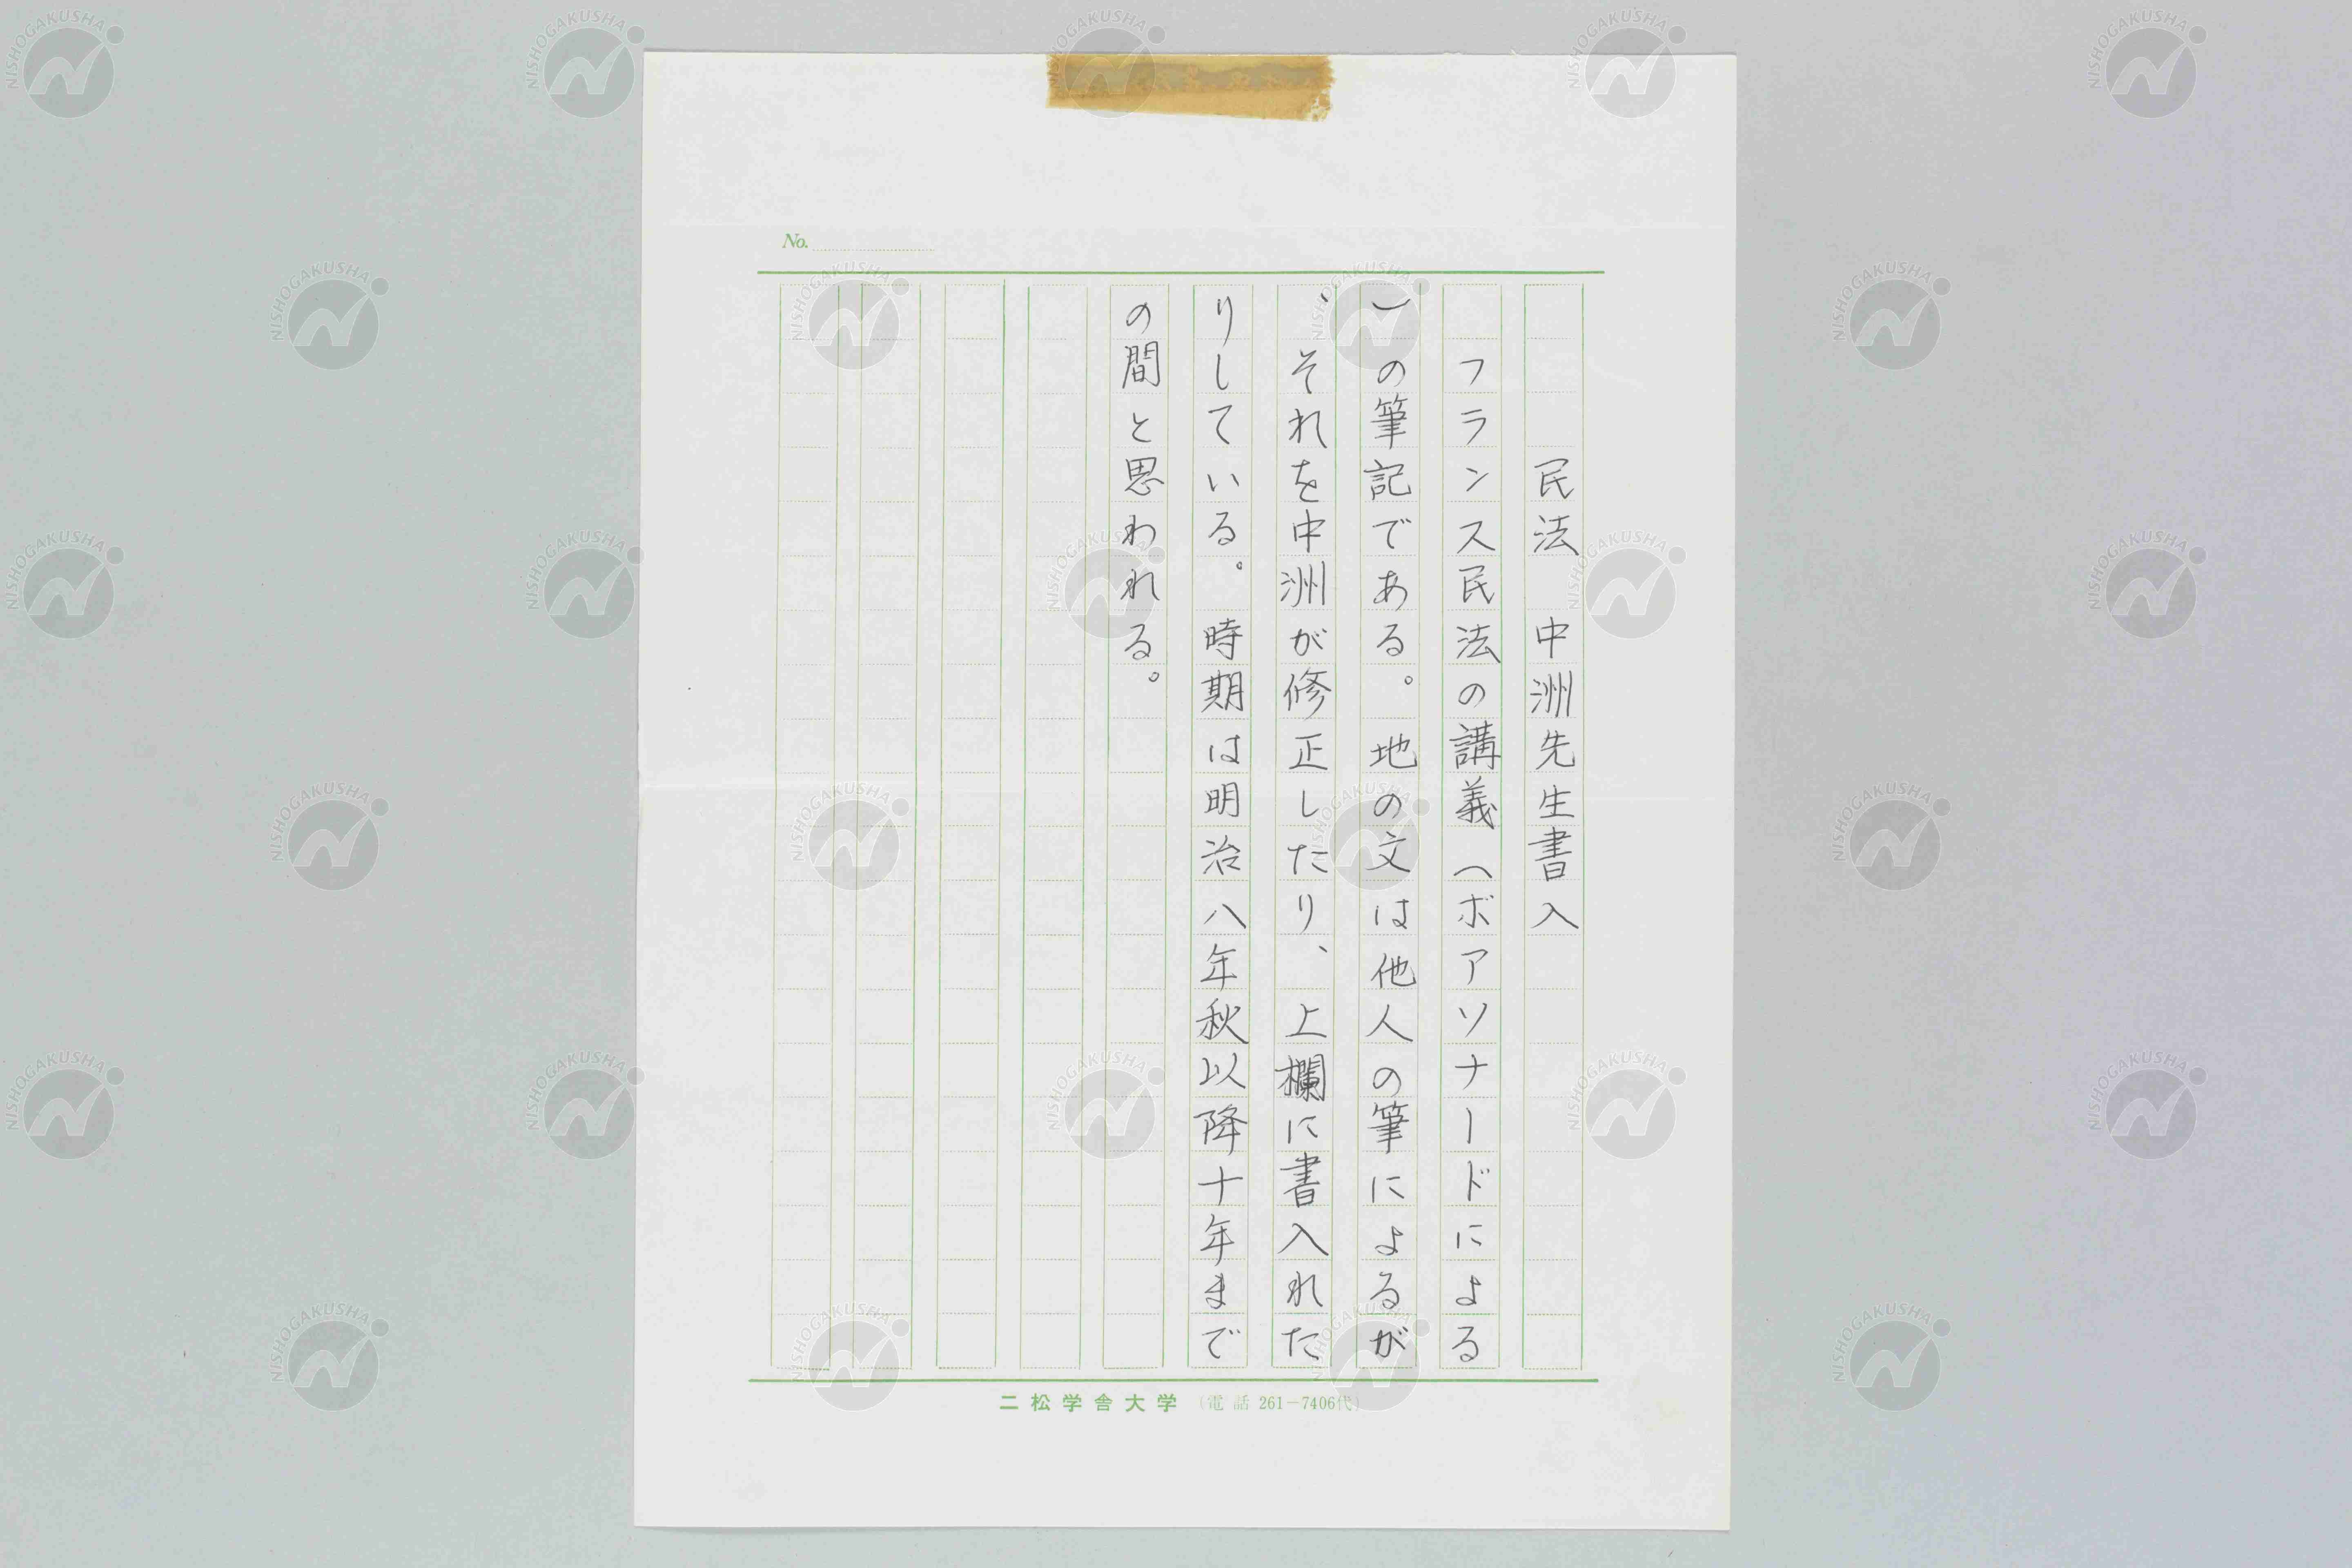 No.
民法　中洲先生書入
フランス民法の講義（ボアソナードによる
）の筆記である。地の文は他人の筆によるが
、それを中洲が修正したり、上欄に書入れた
りしている。時期は明治八年秋以降十年まで
の間と思われる。
二松学舎大学 (電話 261-7406代)
NISHOGAKUSHA